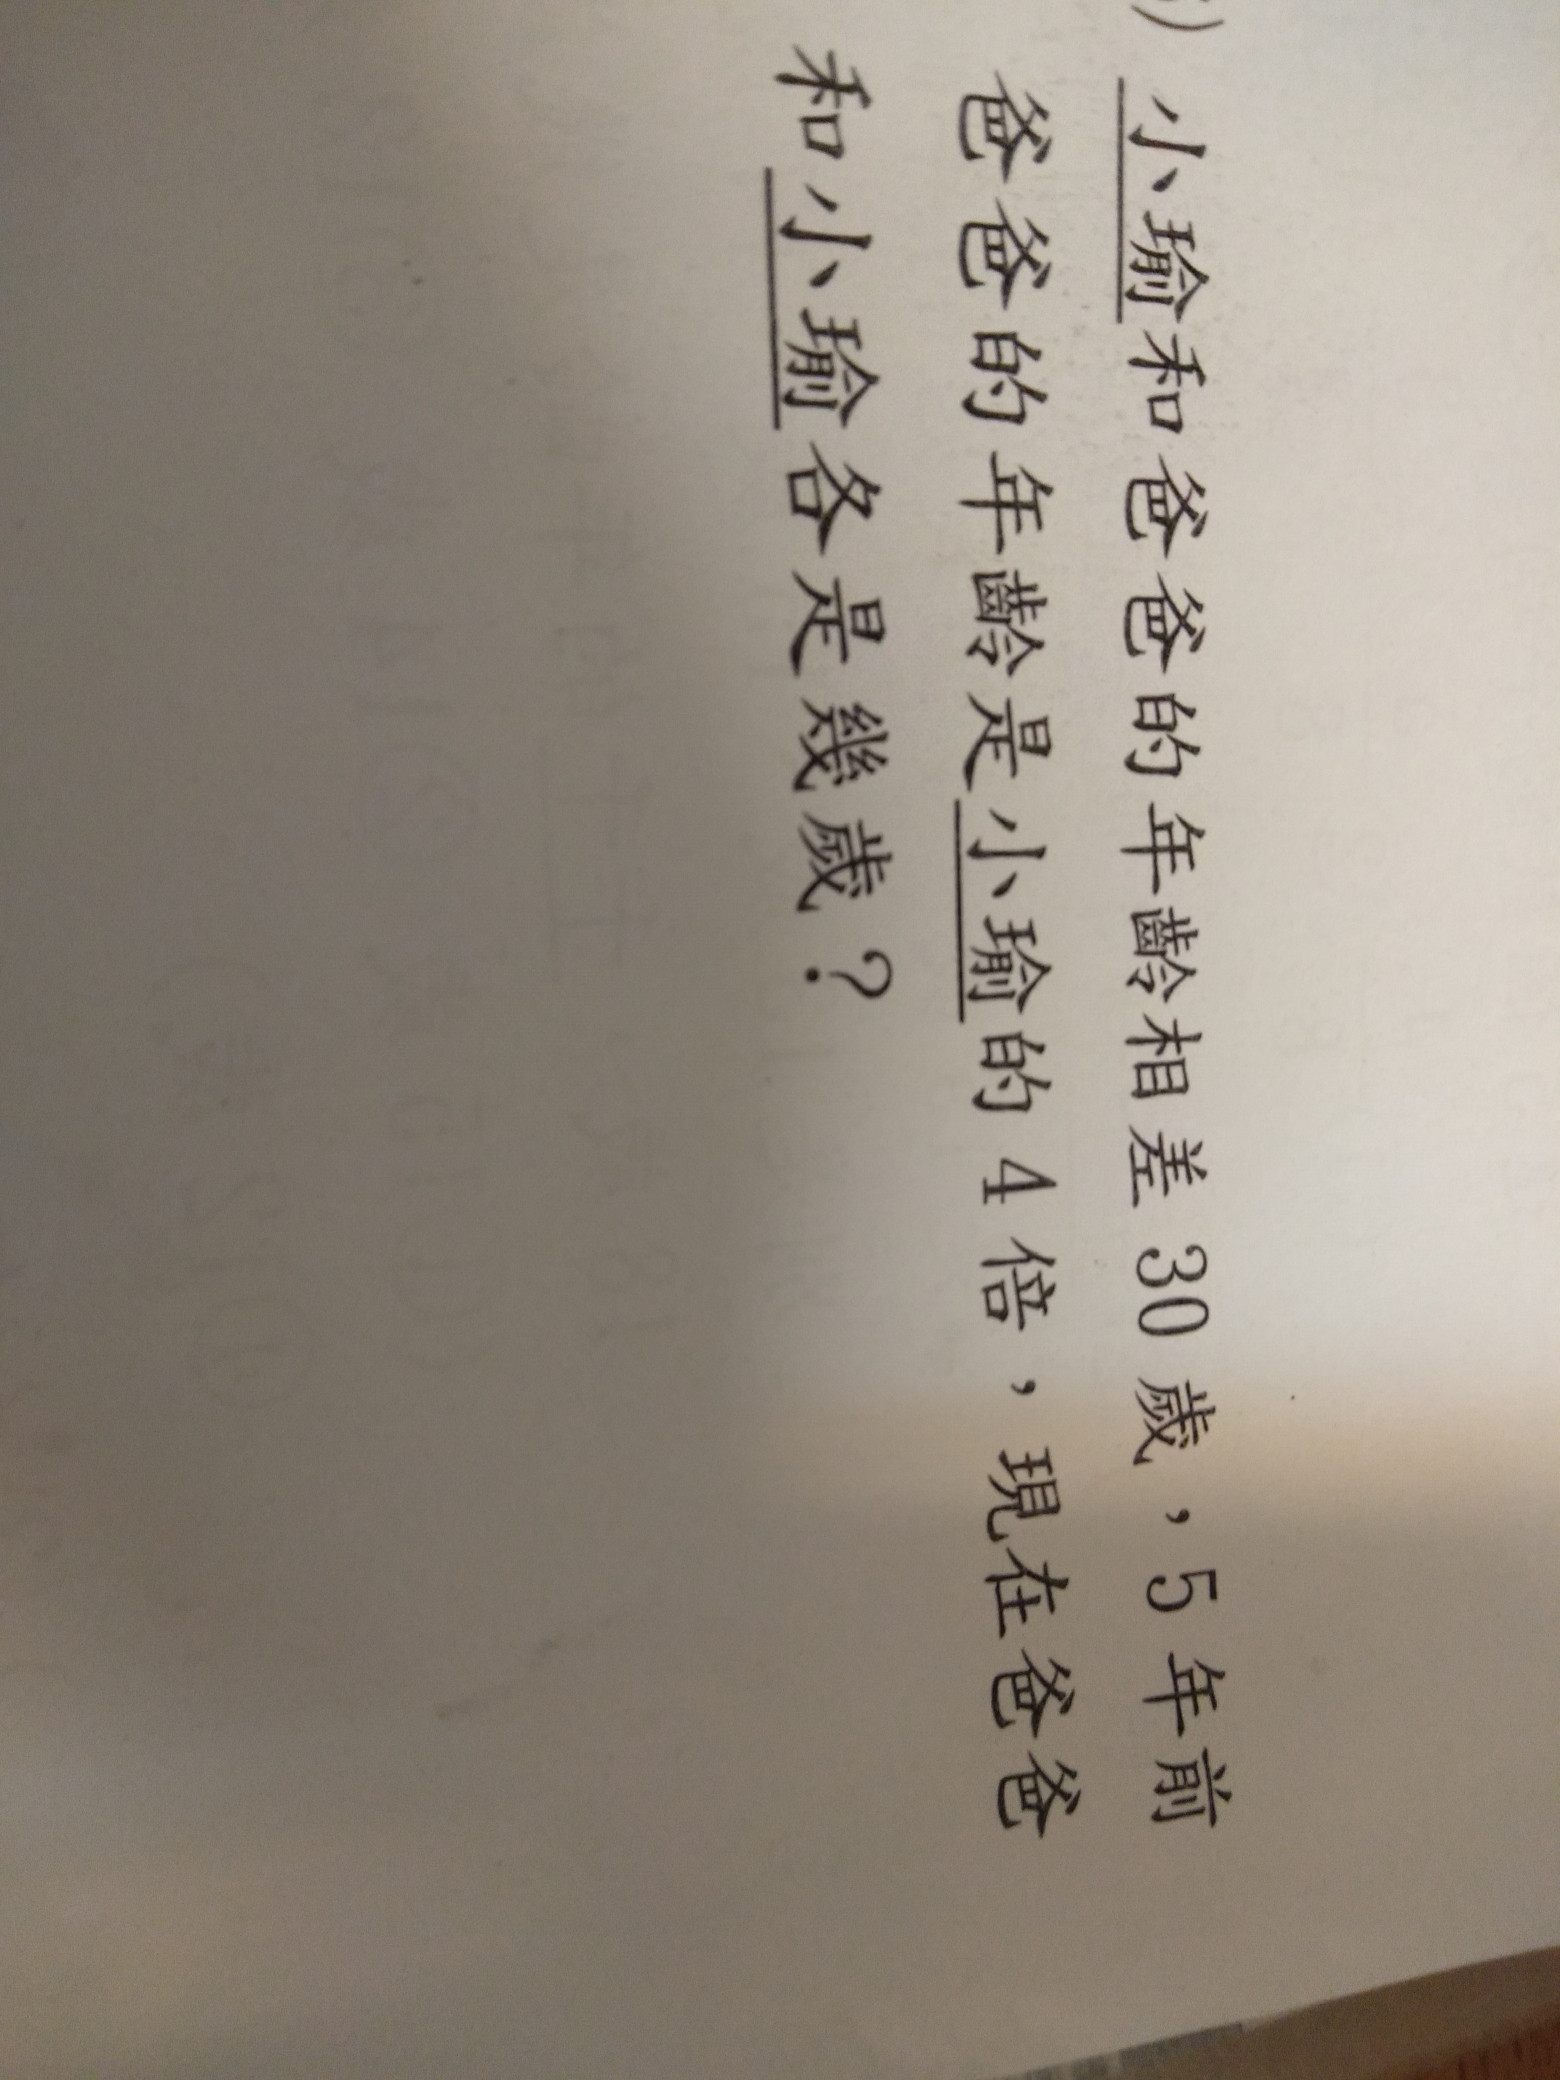 小瑜和爸爸的年齡相差 30 歲，5 年前
爸爸的年齡是小瑜的 4 倍，現在爸爸
和小瑜各是幾歲？